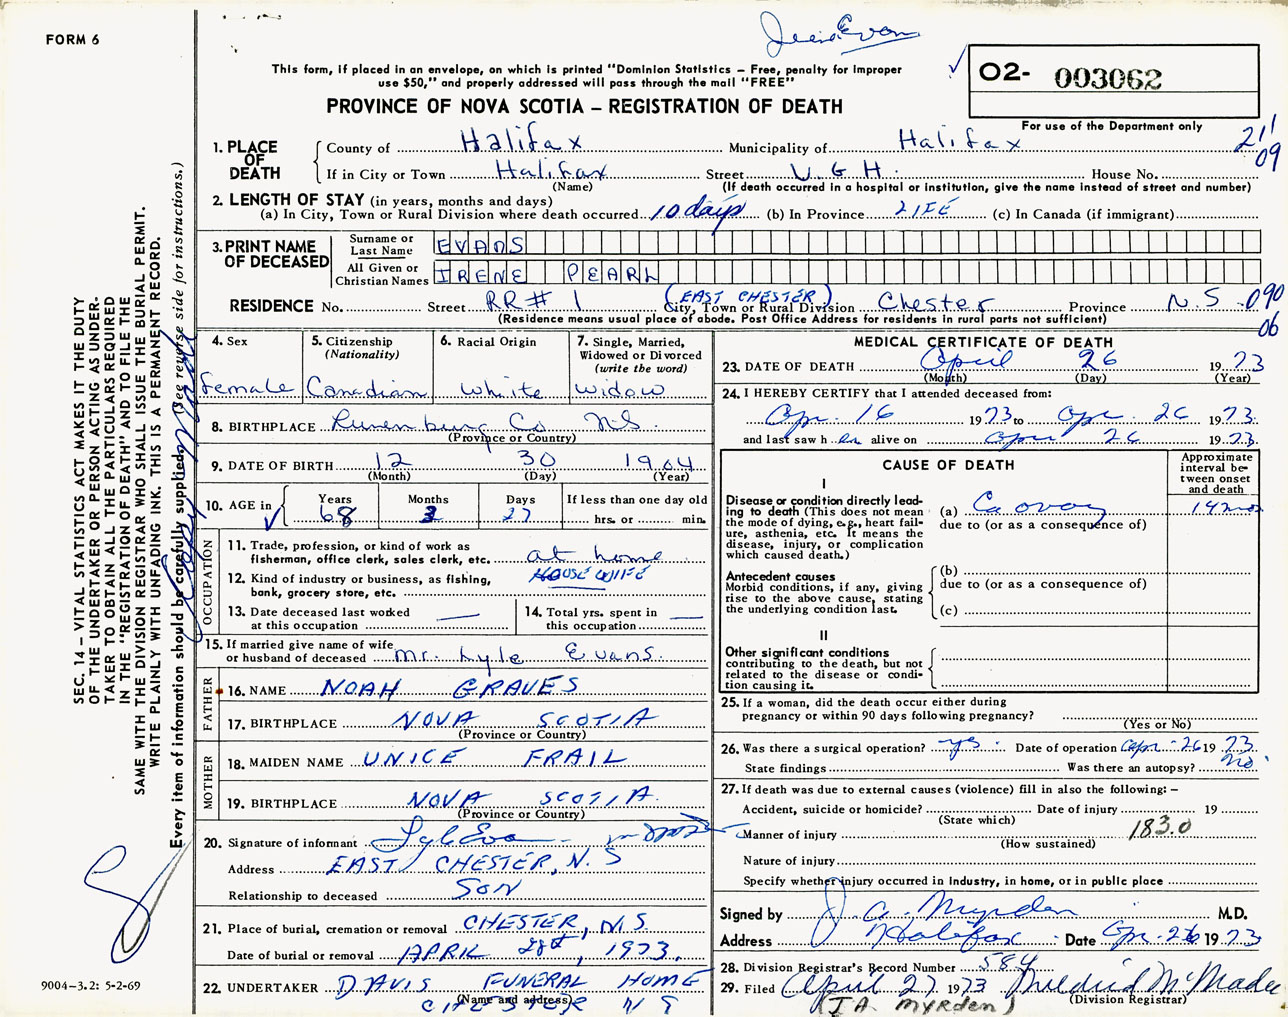 FORM 6
This form, if placed in an envelope, on which is printed "Dominion Statistics – Free, penalty for improper
use $50," and properly addressed will pass through the mail "FREE"
PROVINCE OF NOVA SCOTIA – REGISTRATION OF DEATH
02- 003062
For use of the Department only
21'
09
1. PLACE OF DEATH
County of Halifax Municipality of Halifax
If in City or Town Halifax Street V.G.H. House No.
(Name) (If death occurred in a hospital or institution, give the name instead of street and number)
2. LENGTH OF STAY (in years, months and days)
(a) In City, Town or Rural Division where death occurred 10 days (b) In Province LIFE (c) In Canada (if immigrant)
3. PRINT NAME OF DECEASED
Surname or Last Name EVANS
All Given or Christian Names IRENE PEARL
RESIDENCE No. Street RR# 1 (EAST CHESTER) City, Town or Rural Division Chester Province N.S. 090
(Residence means usual place of abode. Post Office Address for residents in rural parts not sufficient)
06
4. Sex
female
5. Citizenship (Nationality)
Canadian
6. Racial Origin
white
7. Single, Married, Widowed or Divorced (write the word)
widow
8. BIRTHPLACE Lunenburg Co NS
(Province or Country)
9. DATE OF BIRTH 12 30 1904
(Month) (Day) (Year)
10. AGE in
Years 68
Months 3
Days 27
If less than one day old
hrs. or min.
OCCUPATION
11. Trade, profession, or kind of work as
fisherman, office clerk, sales clerk, etc. at home
12. Kind of industry or business, as fishing, HOUSEWIFE
bank, grocery store, etc.
13. Date deceased last worked
at this occupation
14. Total yrs. spent in
this occupation
15. If married give name of wife
or husband of deceased Mr. Lyle Evans.
FATHER
16. NAME NOAH GRAVES
17. BIRTHPLACE NOVA SCOTIA
(Province or Country)
MOTHER
18. MAIDEN NAME UNICE FRAIL
19. BIRTHPLACE NOVA SCOTIA.
(Province or Country)
20. Signature of informant
Address EAST CHESTER, N.S
Relationship to deceased SON
21. Place of burial, cremation or removal CHESTER, N.S.
Date of burial or removal APRIL 28th, 1973.
22. UNDERTAKER DAVIS FUNERAL HOME
(Name and address) CHESTER N S
MEDICAL CERTIFICATE OF DEATH
23. DATE OF DEATH April 26 1973
(Month) (Day) (Year)
24. I HEREBY CERTIFY that I attended deceased from:
Apr. 16 1973 to Apr. 26 1973.
and last saw her alive on Apr 26 1973.
CAUSE OF DEATH
Approximate interval between onset and death
I
Disease or condition directly leading to death (This does not mean the mode of dying, e.g., heart failure, asthenia, etc. It means the disease, injury, or complication which caused death.)
(a) Ca ovary 14 mos
due to (or as a consequence of)
Antecedent causes
Morbid conditions, if any, giving rise to the above cause, stating the underlying condition last.
(b)
due to (or as a consequence of)
(c)
II
Other significant conditions
contributing to the death, but not related to the disease or condition causing it.
25. If a woman, did the death occur either during
pregnancy or within 90 days following pregnancy?
(Yes or No)
26. Was there a surgical operation? yes. Date of operation Apr. 26 1973.
State findings Was there an autopsy? no.
27. If death was due to external causes (violence) fill in also the following:–
Accident, suicide or homicide? Date of injury 19
(State which)
Manner of injury 183.0
(How sustained)
Nature of injury
Specify whether injury occurred in industry, in home, or in public place
Signed by J. A. Myrden M.D.
Address Halifax. Date Apr. 26 1973
28. Division Registrar's Record Number 584
29. Filed April 27 1973 Mildred McMadee
(Division Registrar)
(J A. MYRDEN)
SEC. 14 – VITAL STATISTICS ACT MAKES IT THE DUTY
OF THE UNDERTAKER OR PERSON ACTING AS UNDER-
TAKER TO OBTAIN ALL THE PARTICULARS REQUIRED
IN THE "REGISTRATION OF DEATH" AND TO FILE THE
SAME WITH THE DIVISION REGISTRAR WHO SHALL ISSUE THE BURIAL PERMIT.
WRITE PLAINLY WITH UNFADING INK. THIS IS A PERMANENT RECORD.
Every item of information should be carefully supplied. (See reverse side for instructions.)
9004-3.2: 5-2-69